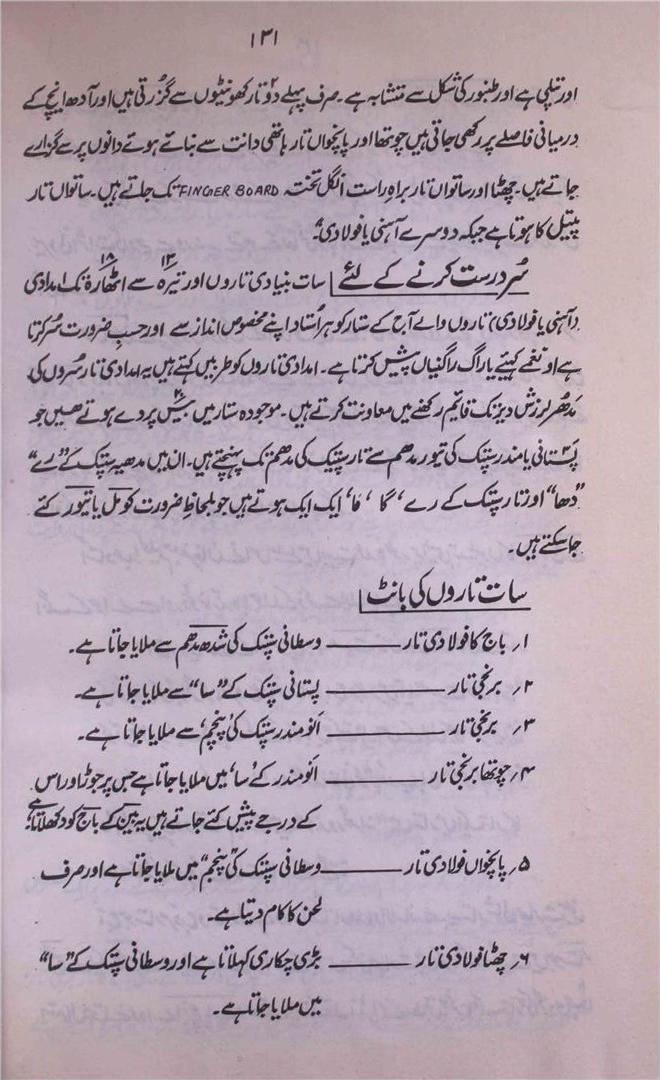 ۱۳۱
اور تپلی ہے اور طنبور کی شکل سے متشابہ ہے۔ صرف پہلے دو۲ تار کھونٹیوں سے گزرتی ہیں اور آدھ انچ کے
درمیانی فاصلے پر رکھی جاتی ہیں چوتھا اور پانچواں تار ہاتھی دانت سے بنائے ہوئے دانوں پر سے گزارے
جاتے ہیں۔ چھٹا اور ساتواں تار براہِ راست انگل تختہ FINGER BOARD تک جاتے ہیں۔ ساتواں تار
پیتل کا ہوتا ہے جبکہ دوسرے آہنی یا فولادی"۔
سُر درست کرنے کے لئے | سات بنیادی تاروں اور تیرہ۱۳ سے اٹھارہ۱۸ تک امدادی
(آہنی یا فولادی) تاروں والے آج کے ستار کو ہر اُستاد اپنے مخصوص انداز سے اور حسبِ ضرورت سُر کرتا
ہے او نغمے کیئے یا راگ راگنیاں پیش کرتا ہے۔ امدادی تاروں کو طربیں کہتے ہیں یہ امدادی تار سُروں کی
مدھر لرزش دیر تک قائم رکھنے میں معاونت کرتے ہیں۔ موجودہ ستار میں بیس۲۰ پردے ہوتے ھیں جو
پستانی یا مندر سپتک کی تیور مدھم سے تار سپتک کی مدھم تک پہنچتے ہیں۔ ان میں مدھیہ سپتک کے "رے"
"دھا" اور تار سپتک کے رے ، گا ، ما ، ایک ایک ہوتے ہیں جو بلحاظِ ضرورت کومل یا تیور کئے
جا سکتے ہیں۔
سات تاروں کی بانٹ |
۱؍ باج کا فولادی تار ——— وسطانی سپتک کی شدھ مدھم سے ملایا جاتا ہے۔
۲؍ برنجی تار ——— پستانی سپتک کے "سا" سے ملایا جاتا ہے۔
۳؍ برنجی تار ——— انو مندر سپتک کی 'پنچم' سے ملایا جاتا ہے۔
۴؍ چوتھا برنجی تار ——— انو مندر کے 'سا' میں ملایا جاتا ہے جس پر جوڑ اور اس
کے درجے پیش کئے جاتے ہیں یہ بین کے باج کو دکھلاتا ہے
۵؍ پانچواں فولادی تار ——— وسطانی سپتک کی "پنچم" میں ملایا جاتا ہے اور صرف
لحن کا کام دیتا ہے۔
۶؍ چھٹا فولادی تار ——— بڑی چکاری کہلاتا ہے اور وسطانی سپتک کے "سا"
میں ملایا جاتا ہے۔